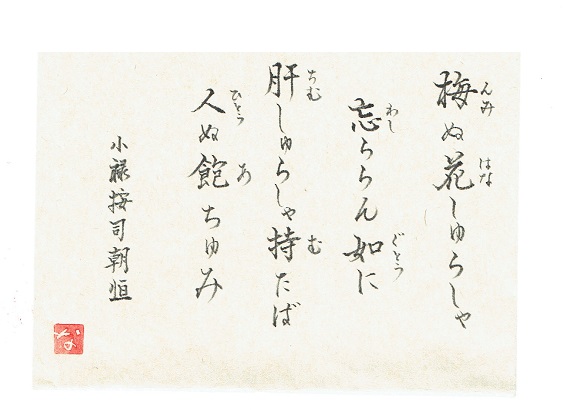 梅ぬ花しゅらしゃ
んみ はな
忘ららん如に
わし ぐとぅ
肝しゅらしゃ持たば
ちむ む
人ぬ飽ちゅみ
ひとぅ あ
小禄按司朝恒
な